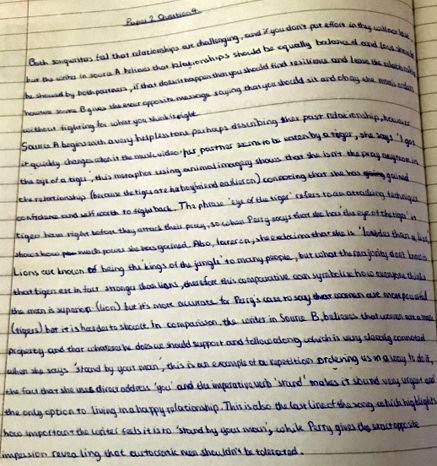 Paper 2 Question 4
Both songwriters feel that relationships are challenging, and if you don't put effort in they will not last
but the writer in source A believes that relationships should be equally balanced and love should
be showed by both partners, if that doesn't happen then you should find resilience and leave the relationship
however source B gives the exact opposite message saying that you should sit and obey the men's orders
without fighting for what you think is right.
Source A begins with a very helpless tone perhaps describing her past relationship, however
it quickly changes when in the music video her partner seem to be eaten by a tiger, she says 'I got
the eye of a tiger', this metaphor using animal imagery shows that she isn't the prey anymore in
the relationship (because the tiger ate her boyfriend earlier on) connoting that she has gained
confidence and self worth to fight back. The phrase 'eye of the tiger' refers to an attacking technique
tigers have right before they attack their prey, so when Perry says that she has 'the eye of the tiger' it
shows how much power she has gained. Also, later on, she exclaims that she is 'louder than a lion'
Lions are known of being the 'kings of the jungle' to many people, but what the majority don't know is
that tigers are in fact stronger than lions, therefore this comparative can symbolise how everyone thinks
the man is superior (lion) but it's more accurate for Perry's case to say that women are more powerful
(tigers) but it is harder to show it. In comparison, the writer in Source B, believes that women are a man's
property and that whatever he does we should support and follow along which is very clearly connoted
when she says 'stand by your man', this is an example of a repetition ordering us in a way to do it,
the fact that she uses direct address 'you' and the imperative verb 'stand' makes it sound very urgent and
the only option to living in a happy relationship. This is also the last line of the song which highlights
how important the writer feels it is to 'stand by your man', while Perry gives the exact opposite
impression revealing that autocratic men shouldn't be tolerated.